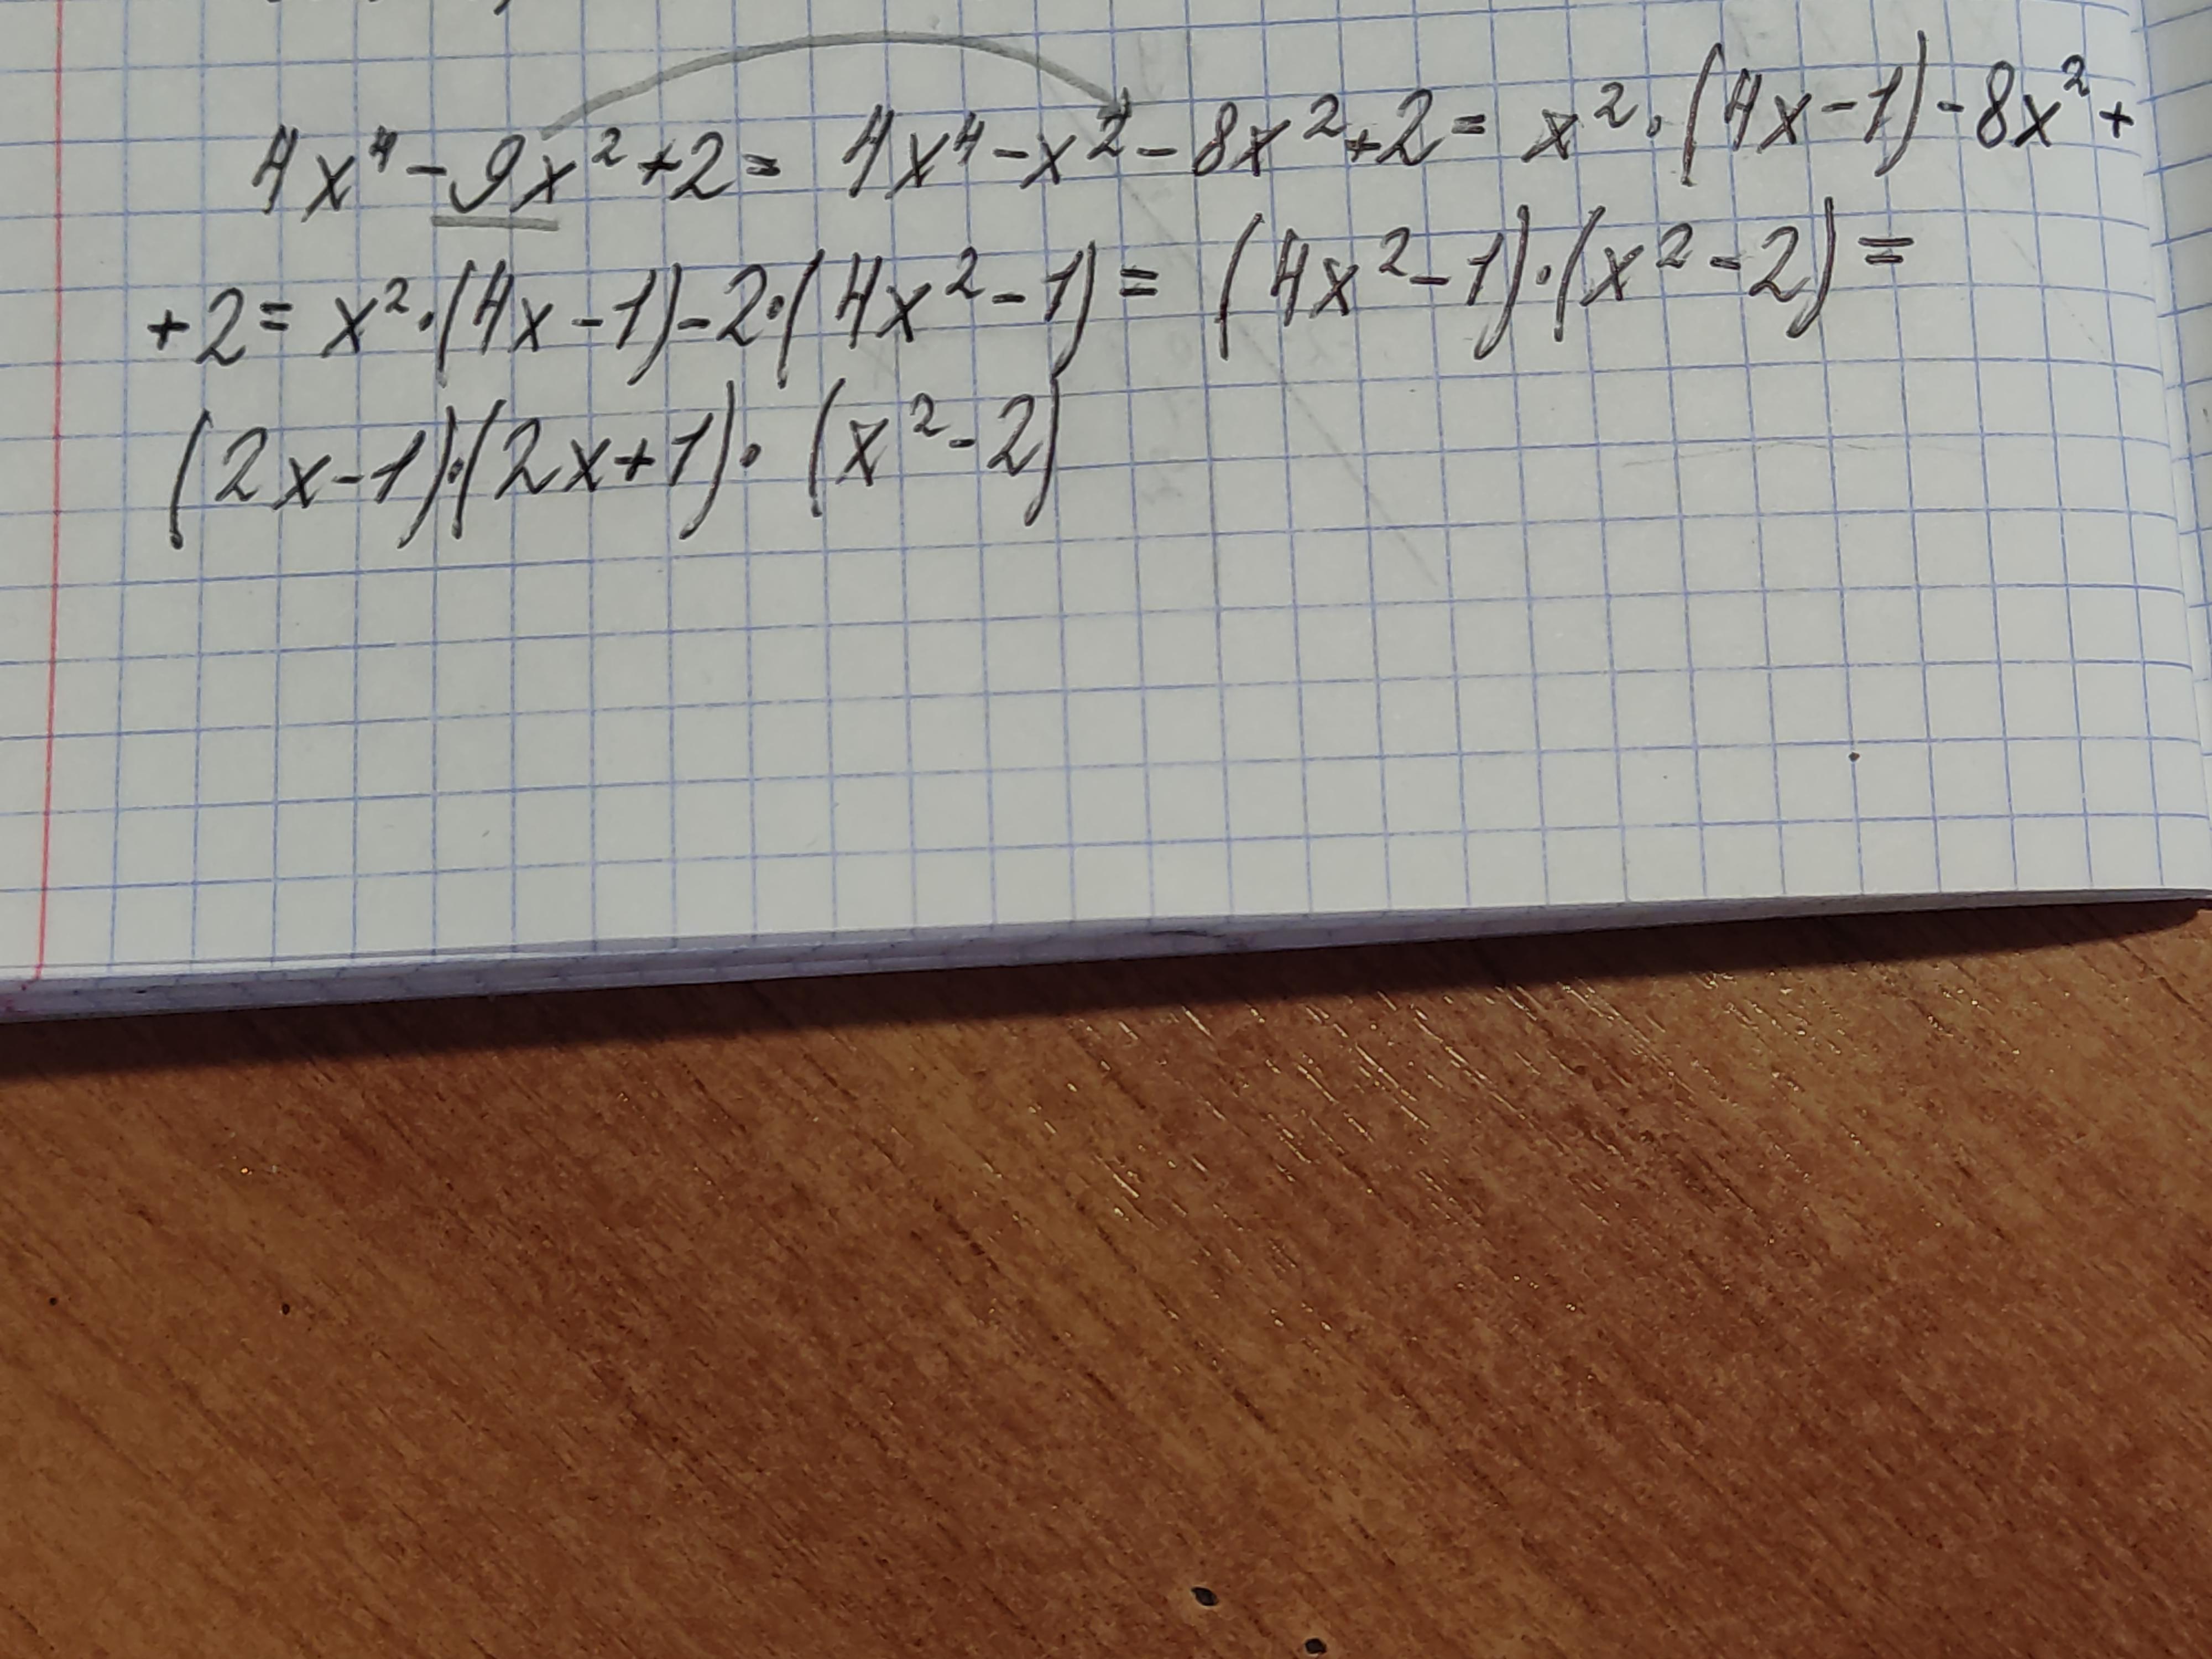 4x⁴-9x²+2= 4x⁴-x²-8x²+2= x²·(4x-1)-8x²+
+2= x²·(4x-1)-2·(4x²-1)= (4x²-1)·(x²-2)=
(2x-1)·(2x+1)·(x²-2)